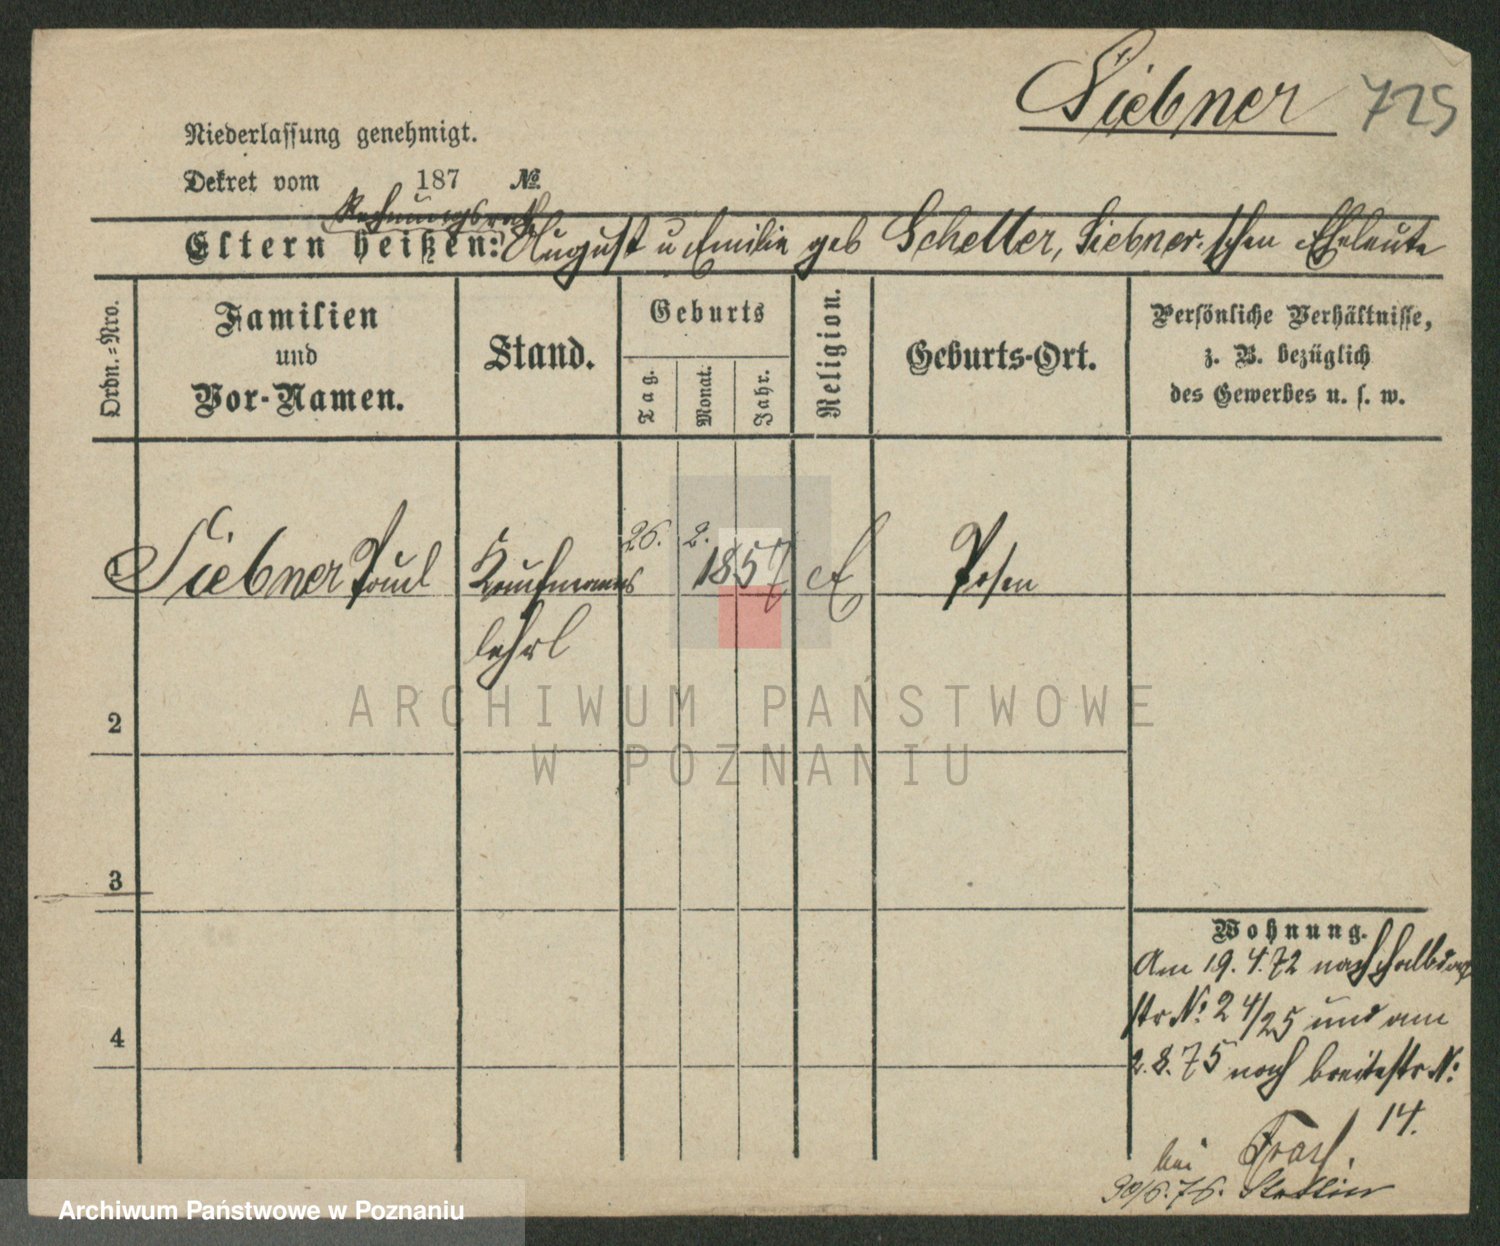 Siebner 725
Niederlassung genehmigt.
Dekret vom 187 №
Rechnungsrath
Eltern heißen: August u Emilie geb Scheller, Siebner'schen Eheleute
Ordn.-Nro.
Familien
und
Vor-Namen.
Stand.
Geburts
Tag.
Monat.
Jahr.
Religion.
Geburts-Ort.
Persönliche Verhältnisse,
z. B. bezüglich
des Gewerbes u. s. w.
1 Siebner Paul Kaufmanns 26. 2. 1857 E Posen
lehrl
2
3
4
Wohnung.
Am 19. 4. 72 nach Halbdorf
str. No 24/25 und am
2. 8. 75 nach breitestr No
14.
bei
30/6. 76. Stettin
ARCHIWUM PAŃSTWOWE
W POZNANIU
Archiwum Państwowe w Poznaniu